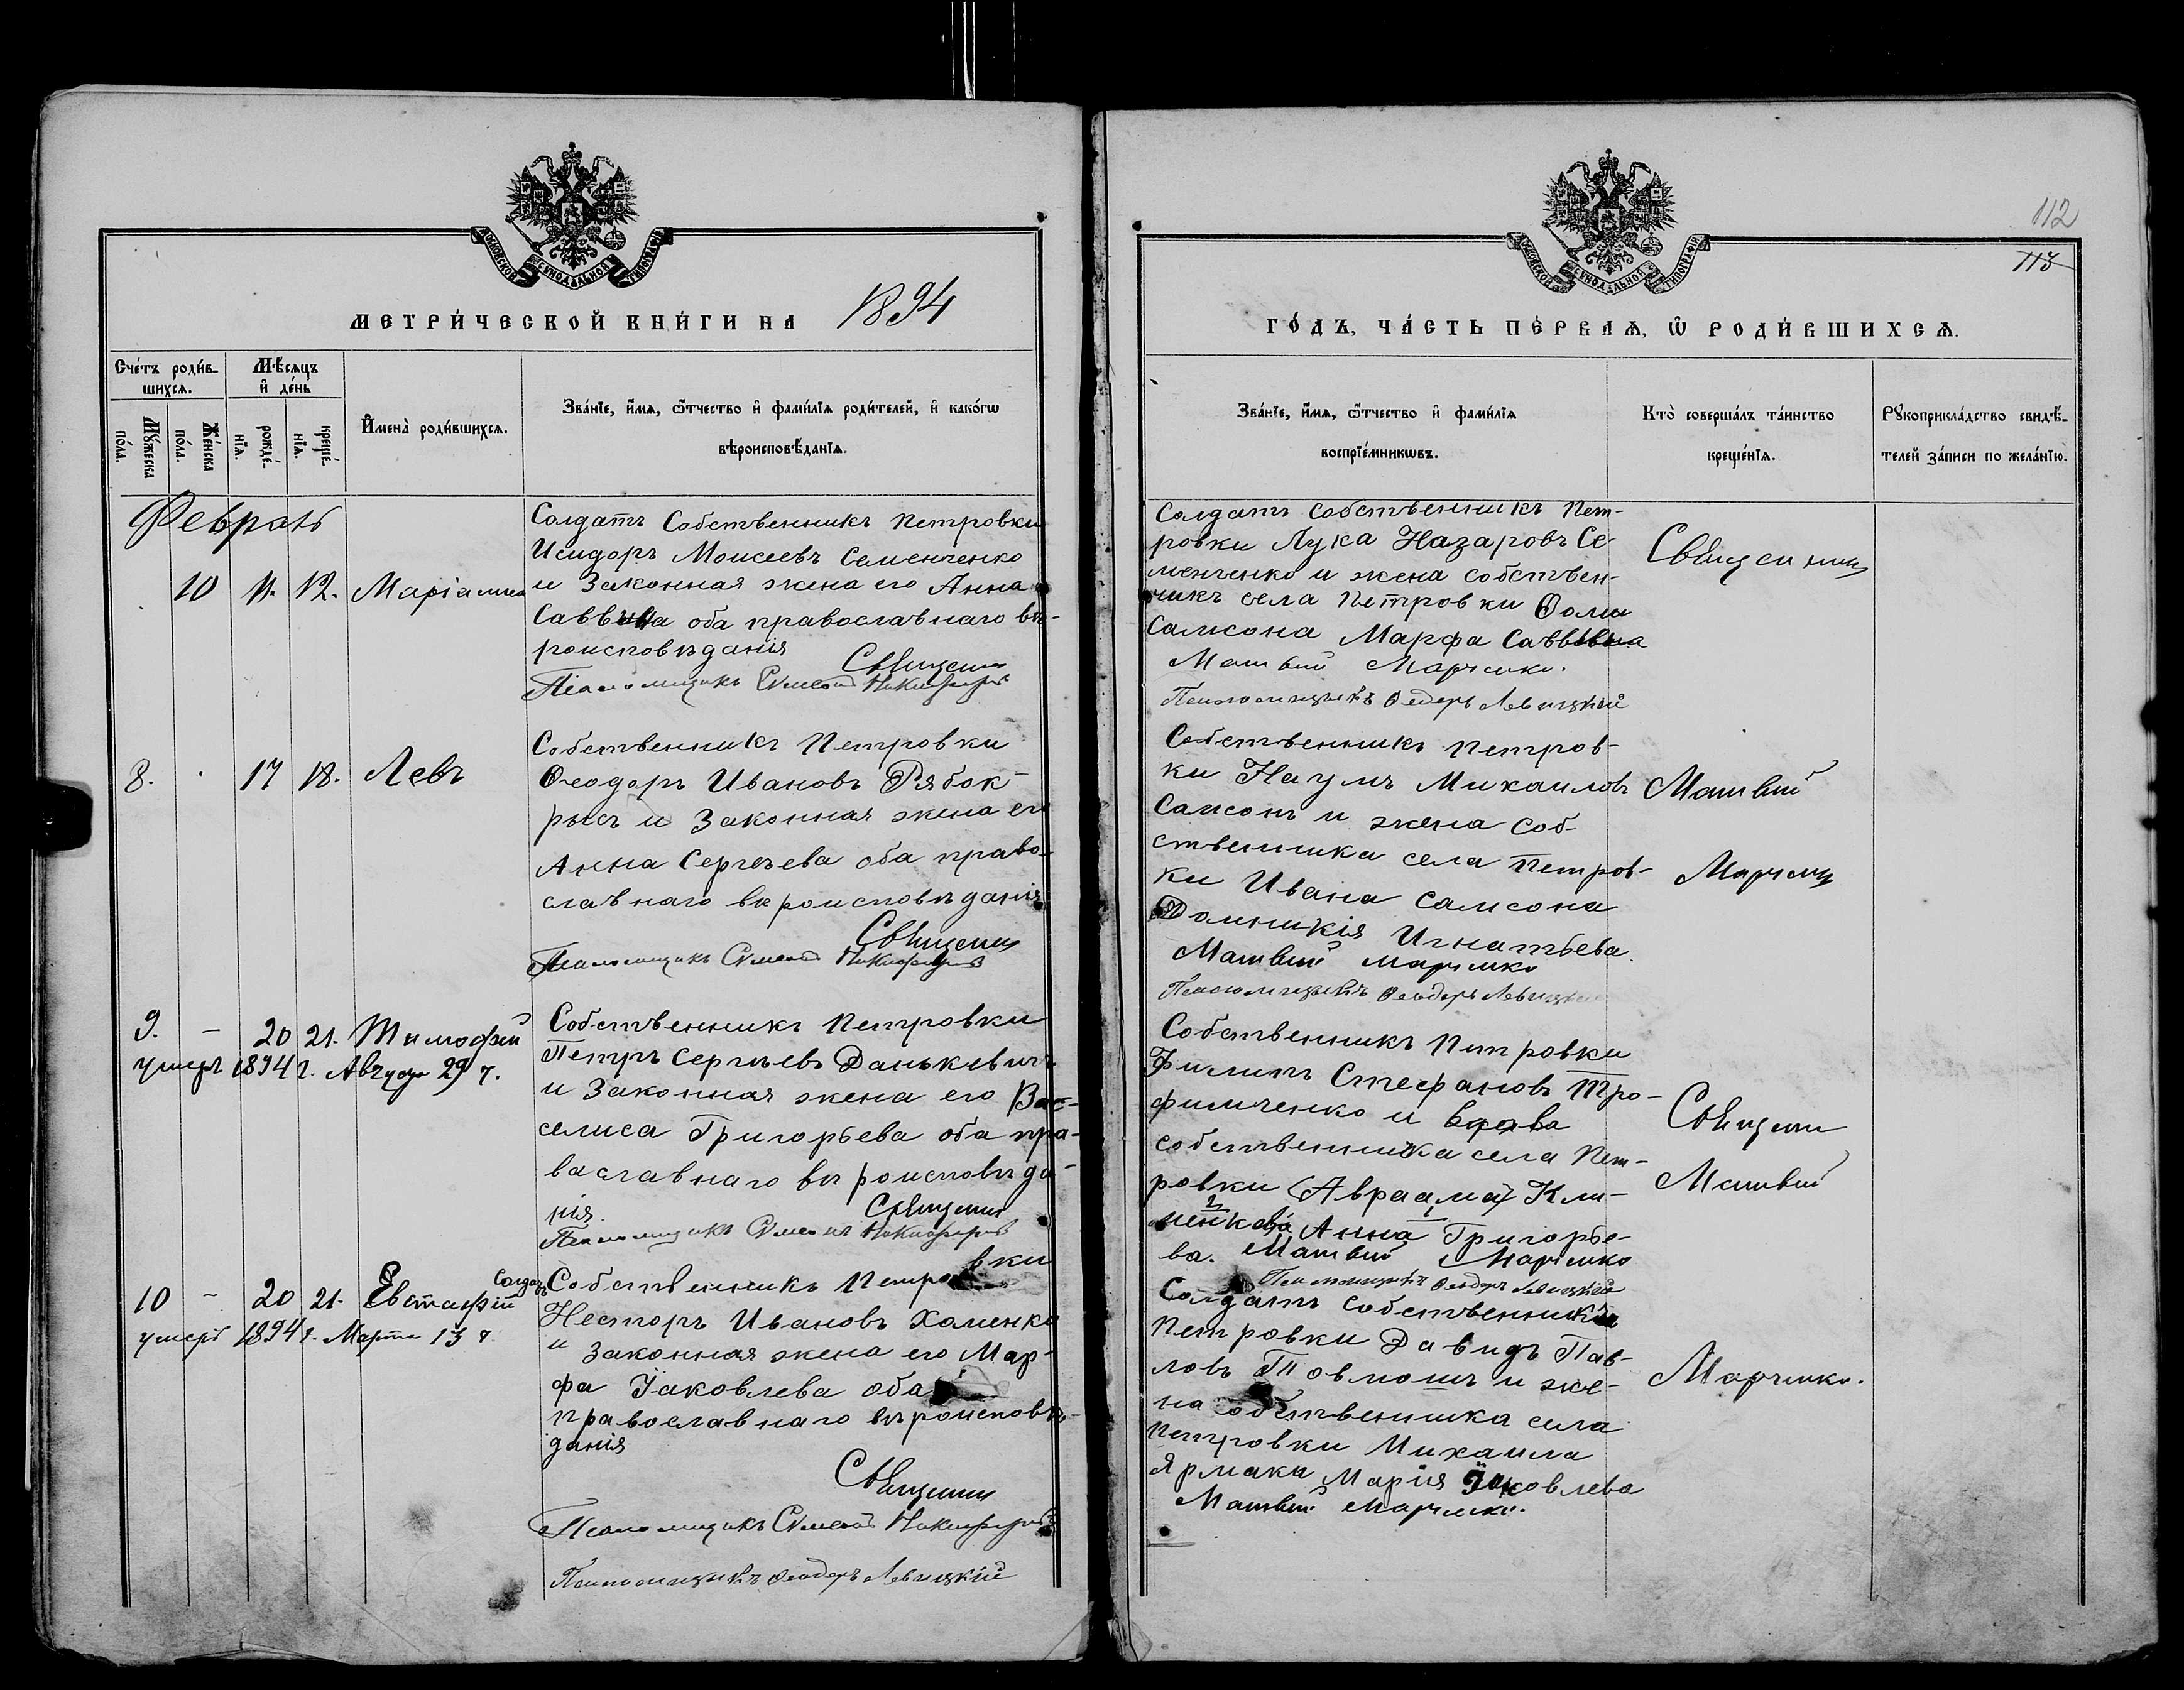 МОСКОВСКОЙ СѴНОДАЛЬНОЙ ТИПОГРАФІИ
МЕТРИ́ЧЕСКОЙ КНИ́ГИ НА 1894
Сче́тъ роди́в-
шихсѧ.
Мѣ́сѧцъ
и҆ де́нь
Мꙋ́жеска
по́ла.
Же́нска
по́ла.
рожде́-
нїѧ.
креще́-
нїѧ.
И҆мена̀ роди́вшихсѧ.
Зва́нїе, и҆́мѧ, ѻ҆́тчество и҆ фами́лїѧ роди́телей, и҆ како́гѡ
вѣроисповѣ́данїѧ.
Февраль
10 11. 12. Маріамна
Солдатъ Собственникъ Петровки
Исидоръ Моисеевъ Семенченко
и Законная жена его Анна
Саввина оба православнаго вѣ-
роисповѣданія
Священн
Псаломщикъ Симеонъ Никифоровъ
8. 17 18. Левъ
Собственникъ Петровки
Ѳеодоръ Ивановъ Рябок-
рысъ и Законная жена его
Анна Сергѣева оба право-
славнаго вѣроисповѣданія
Священн
Псаломщикъ Симеонъ Никифоровъ
9. – 20 21. Тимофей
умеръ 1894 г. Августа 29 ч.
Собственникъ Петровки
Петръ Сергѣевъ Данькевичъ
и Законная жена его Вас-
селиса Григорьева оба пра-
вославнаго вѣроисповѣда-
нія.
Священн
Псаломщикъ Симеонъ Никифоровъ
10 – 20 21. Евстафій
умеръ 1894 г. Марта 13 ч
Солдатъ Собственникъ Петровки
Несторъ Ивановъ Хоменко
и Законная жена его Мар-
фа Іаковлева оба
православнаго вѣроисповѣ-
данія
Священн
Псаломщикъ Симеонъ Никифоровъ
Псаломщикъ Ѳеодоръ Левицкій
112
113
МОСКОВСКОЙ СѴНОДАЛЬНОЙ ТИПОГРАФІИ
ГО́ДЪ, ЧА́СТЬ ПЕ́РВАѦ, Ѡ҆ РОДИ́ВШИХСѦ.
Зва́нїе, и҆́мѧ, ѻ҆́тчество и҆ фами́лїѧ
воспрїе́мникѡвъ.
Кто̀ соверша́лъ та́инство
креще́нїѧ.
Рꙋкоприкла́дство свидѣ́-
телей за́писи по жела́нїю.
Солдатъ Собственникъ Пет-
ровки Лука Назаровъ Се-
менченко и жена собствен-
никъ села Петровки Ѳомы
Самсона Марфа Саввивна
Матвий Марченко.
Псаломщикъ Ѳеодоръ Левицкій
Священник
Собственникъ Петров-
ки Наумъ Михаиловъ
Самсонъ и жена Соб-
ственника села Петров-
ки Ивана Самсона
Домникія Игнатьева.
Матвий Марченко
Псаломщикъ Ѳеодоръ Левицкій
Матвий
Марченк
Собственникъ Петровки
Филипъ Стефановъ Тро-
фимченко и вдова
собственника села Пет-
ровки (Авраама) Кли-
менкова Анна Григорье-
ва. Матвий Марченко
Псаломщикъ Ѳеодоръ Левицкій
Священн
Матвий
Солдатъ собственникъ
Петровки Давидъ Пав-
ловъ Товмошъ и же-
на собственника села
Петровки Михаила
Ярмака Марія Іаковлева
Матвий Марченко.
Марченко.